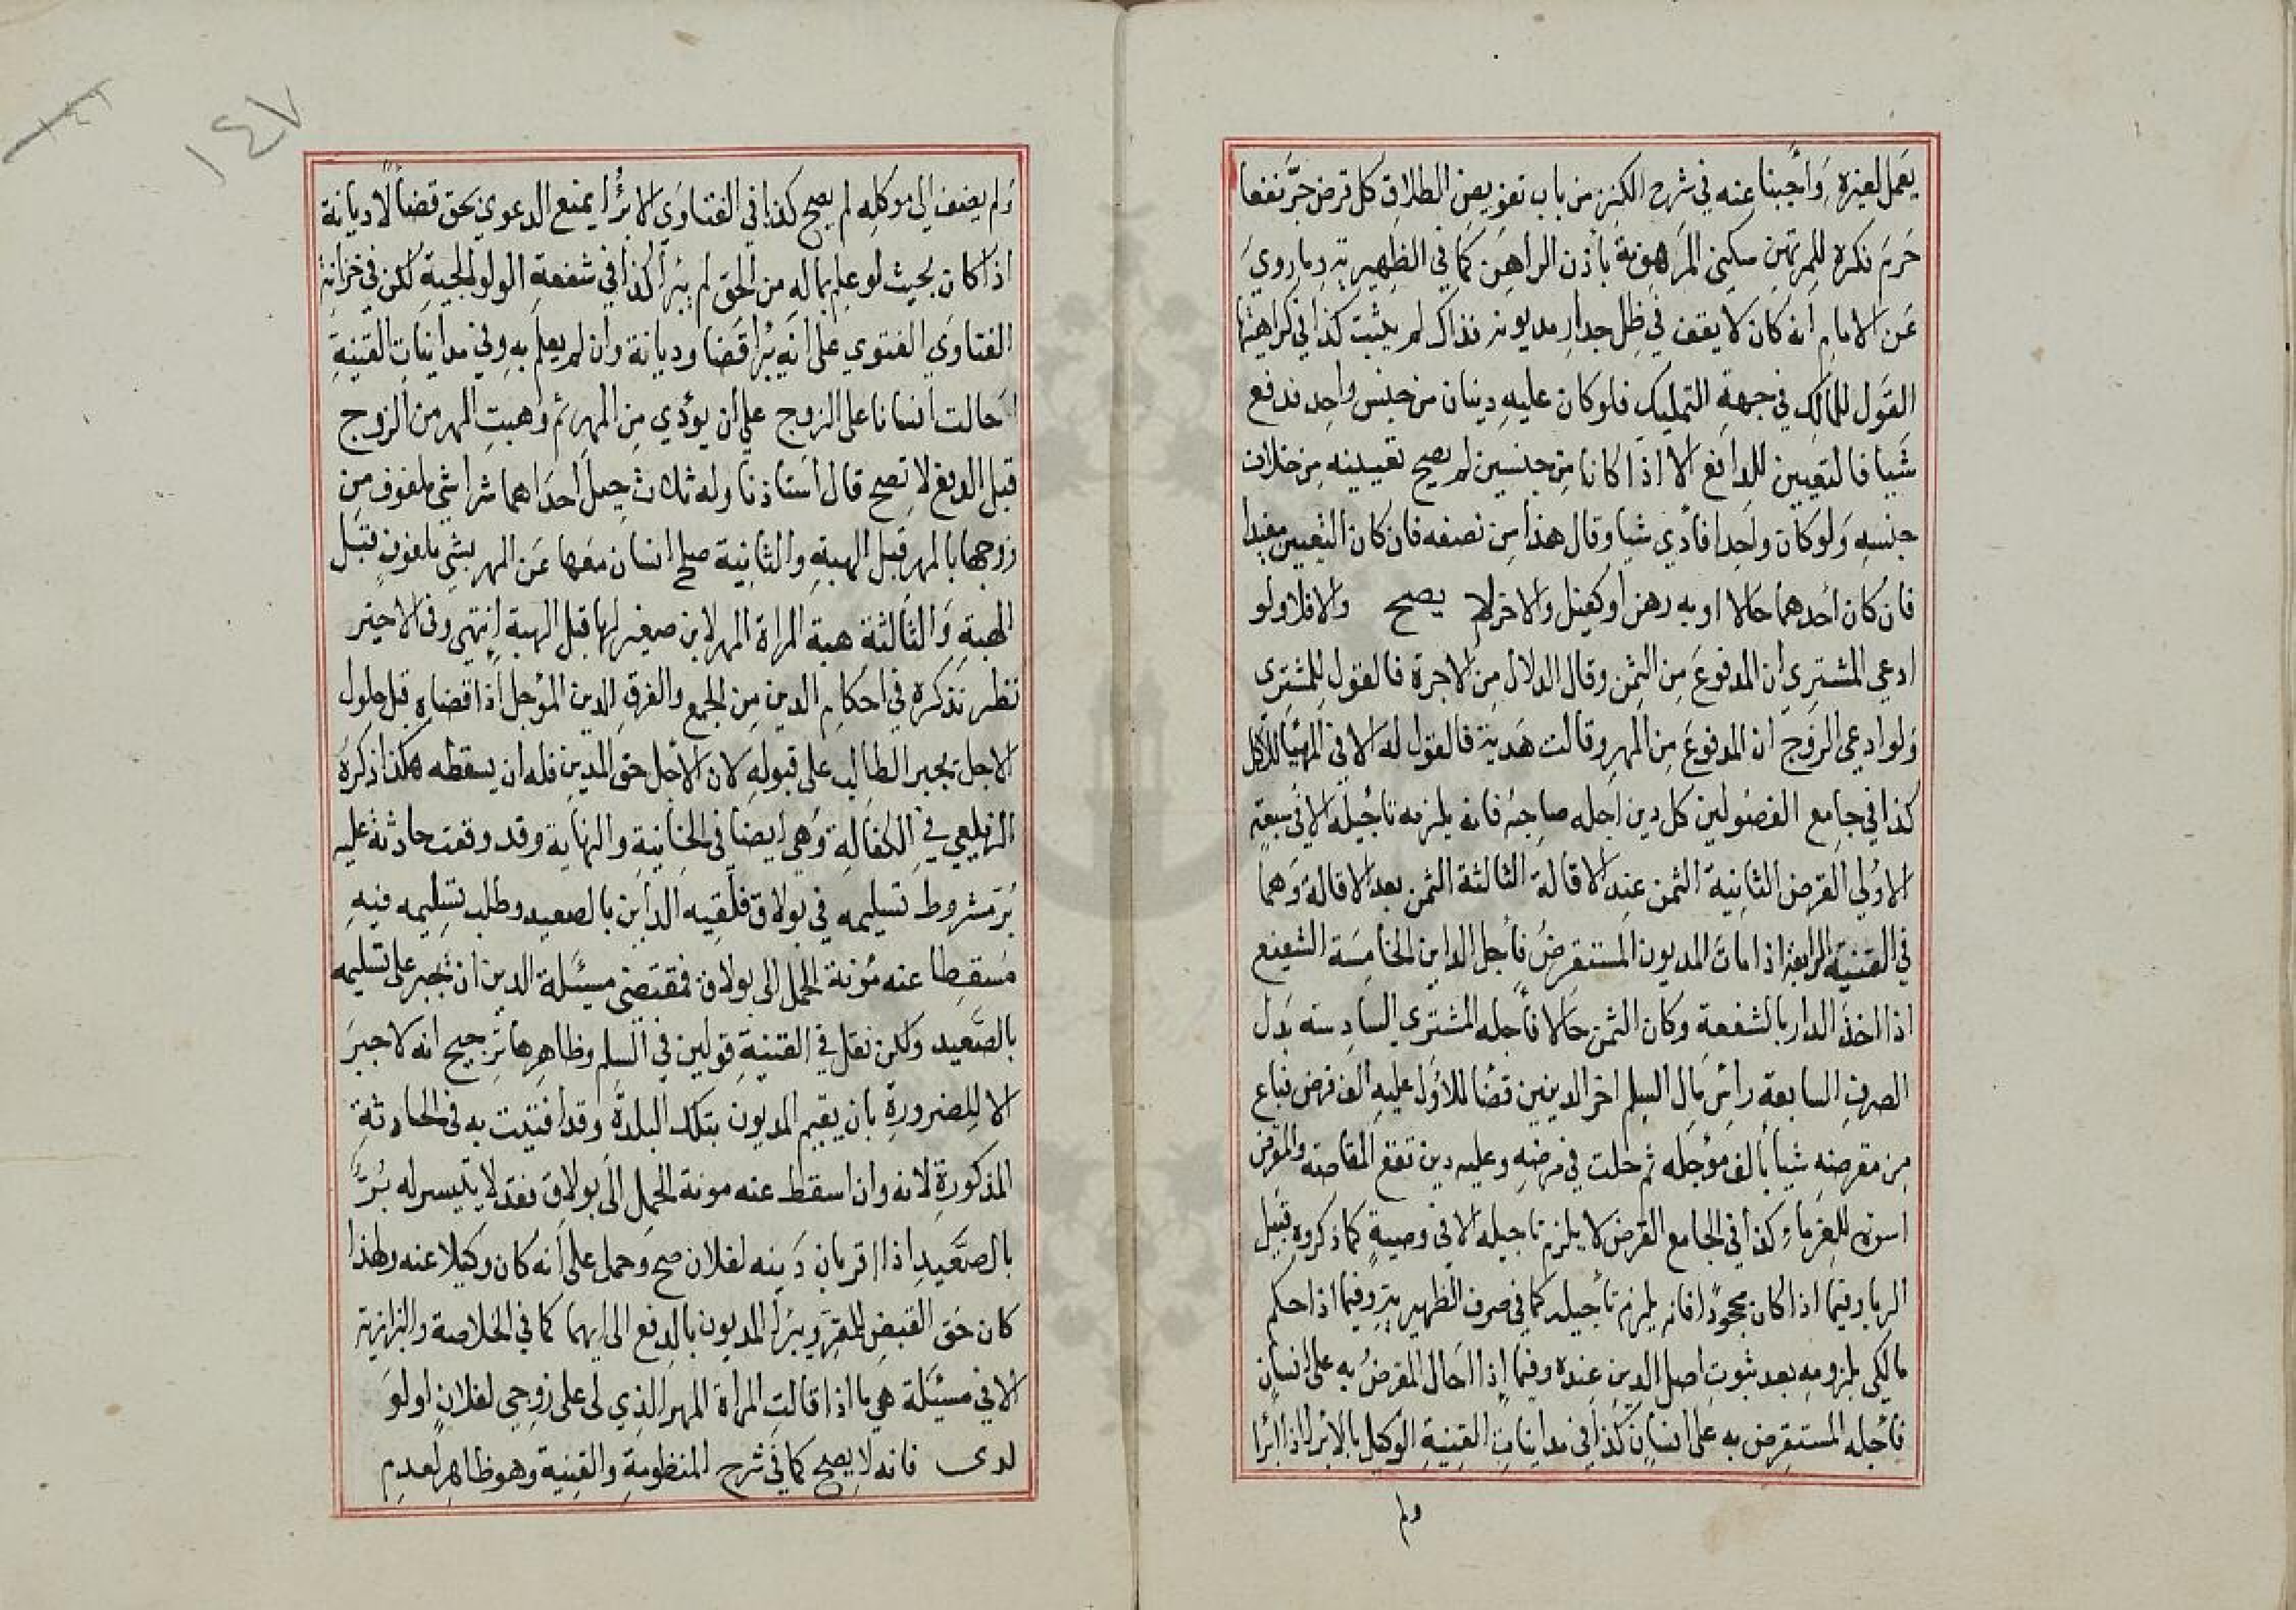 يعمل لغيره وأجبنا عنه في شرح الكنز من باب تفويض الطلاق كل قرض جرّ نفعا
حرم فكره للمرتهن سكنى المرهونة بأذن الراهن كما في الظهيرية وما روي
عن الامام انه كان لا يقف في ظل جدار مديونه فذاك لم يثبت كذا في كراهيتها
القول للمالك في جهة التمليك فلو كان عليه دينان من جنس واحد فدفع
شيا فالتعيين للدافع الا اذا كانا من جنسين لم يصح تعيينه من خلاف
جنسه ولو كان واحدا فأدي شيا وقال هذا من نصفه فان كان التعيين مفيدا
فان كان أحدهما حالا او به رهن او كفيل والاخر لا يصح والا فلا ولو
ادعى المشتري ان المدفوع من الثمن وقال الدلال من الاجرة فالقول للمشتري
ولو ادعى الزوج ان المدفوع من المهر وقالت هدية فالقول له الا في المهيأ للأكل
كذا في جامع الفصولين كل دين أجله صاحبه فانه يلزمه تأجيله الا في سبعة
الاولي القرض الثانية الثمن عند الاقالة الثالثة الثمن بعد الاقالة وهما
في القنية الرابعة اذا مات المديون المستقرض فأجل الداين الخامسة الشفيع
اذا اخذ الدار بالشفعة وكان الثمن حالا فأجله المشتري السادسة بدل
الصرف السابعة رأس مال السلم اخر الدينين قضا للاول عليه الف قرض فباع
من مقرضه شيا بألف مؤجله ثم حلت في مرضه وعليه دين تقع المقاصة والمقرض
اسوة للغرماء كذا في الجامع القرض لا يلزم تأجيله الا في وصية كما ذكروه قبيل
الربا وفيما اذا كان مجحودا فانه يلزم تأجيله كما في صرف الظهيرية وفيما اذا حكم
مالكي بلزومه بعد ثبوت اصل الدين عنده وفيما إذا احال المقرض به على انسان
فأجله المستقرض به على انسان كذا في مداينات القنية الوكيل بالابراء اذا ابرأ
ولم
١٤٧
ولم يضف الي موكله لم يصح كذا في الفتاوي الابراء يمنع الدعوي بحق قضاءً لا ديانة
اذا كان بحيث لو علم بماله من الحق لم يبرأ كذا في شفعة الولوالجية لكن في خزانة
الفتاوي الفتوي على انه يبرأ قضا وديانة وان لم يعلم به وفي مداينات القنية
احالت انسانا على الزوج على أن يؤدي من المهر ثم وهبت المهر من الزوج
قبل الدفع لا تصح قال استاذنا وله ثلاث حيل احداهما شرا شي ملفوف من
زوجها بالمهر قبل الهبة والثانية صلح انسان معها عن المهر بشي ملفوف قبل
الهبة والثالثة هبة المراة المهر لابن صغير لها قبل الهبة انتهي وفي الاخير
نظر نذكره في احكام الدين من الجمع والفرق الدين المؤجل اذا قضاه قبل حلول
الاجل يجبر الطالب على قبوله لان الأجل حق المدين فله ان يسقطه هكذا ذكره
الزيلعي في الكفالة وهي ايضا في الخانية والنهاية وقد وقعت حادثة عليه
بُرّ مشروط تسليمه في بولاق فلقيه الداين بالصعيد وطلب تسليمه فيه
مسقطا عنه مؤنة الحمل الى بولاق فمقتضى مسئلة الدين ان تجبر على تسليمه
بالصعيد ولكن نقل في القنية قولين في السلم وظاهرها ترجيح انه لا جبر
الا للضرورة بان يقيم المديون بتلك البلدة وقد افتيت به في الحادثة
المذكورة لانه وان اسقط عنه مونة الحمل الى بولاق فقد لا يتيسر له بُرّ
بالصعيد اذا اقر بان دينه لفلان صح وحمل على أنه كان وكيلا عنه ولهذا
كان حق القبض للمقر ويبرأ المديون بالدفع الى ايهما كما في الخلاصة والبزازية
الا في مسئلة هي ما اذا قالت المرأة المهر الذي لى على زوجي لفلان او لو
لدى فانه لا يصح كما في شرح المنظومة والقنية وهو ظاهر لعدم